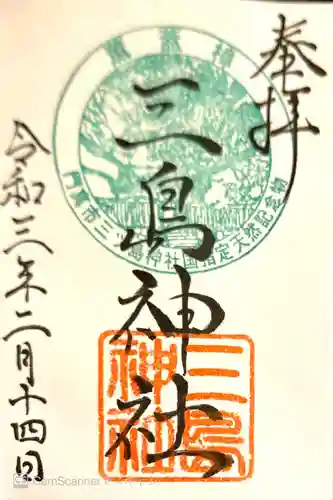 奉拝
三島神社
令和三年二月十四日
薫蓋樟
門真市三ツ島神社国指定天然記念物
三島
神社
CamScanner